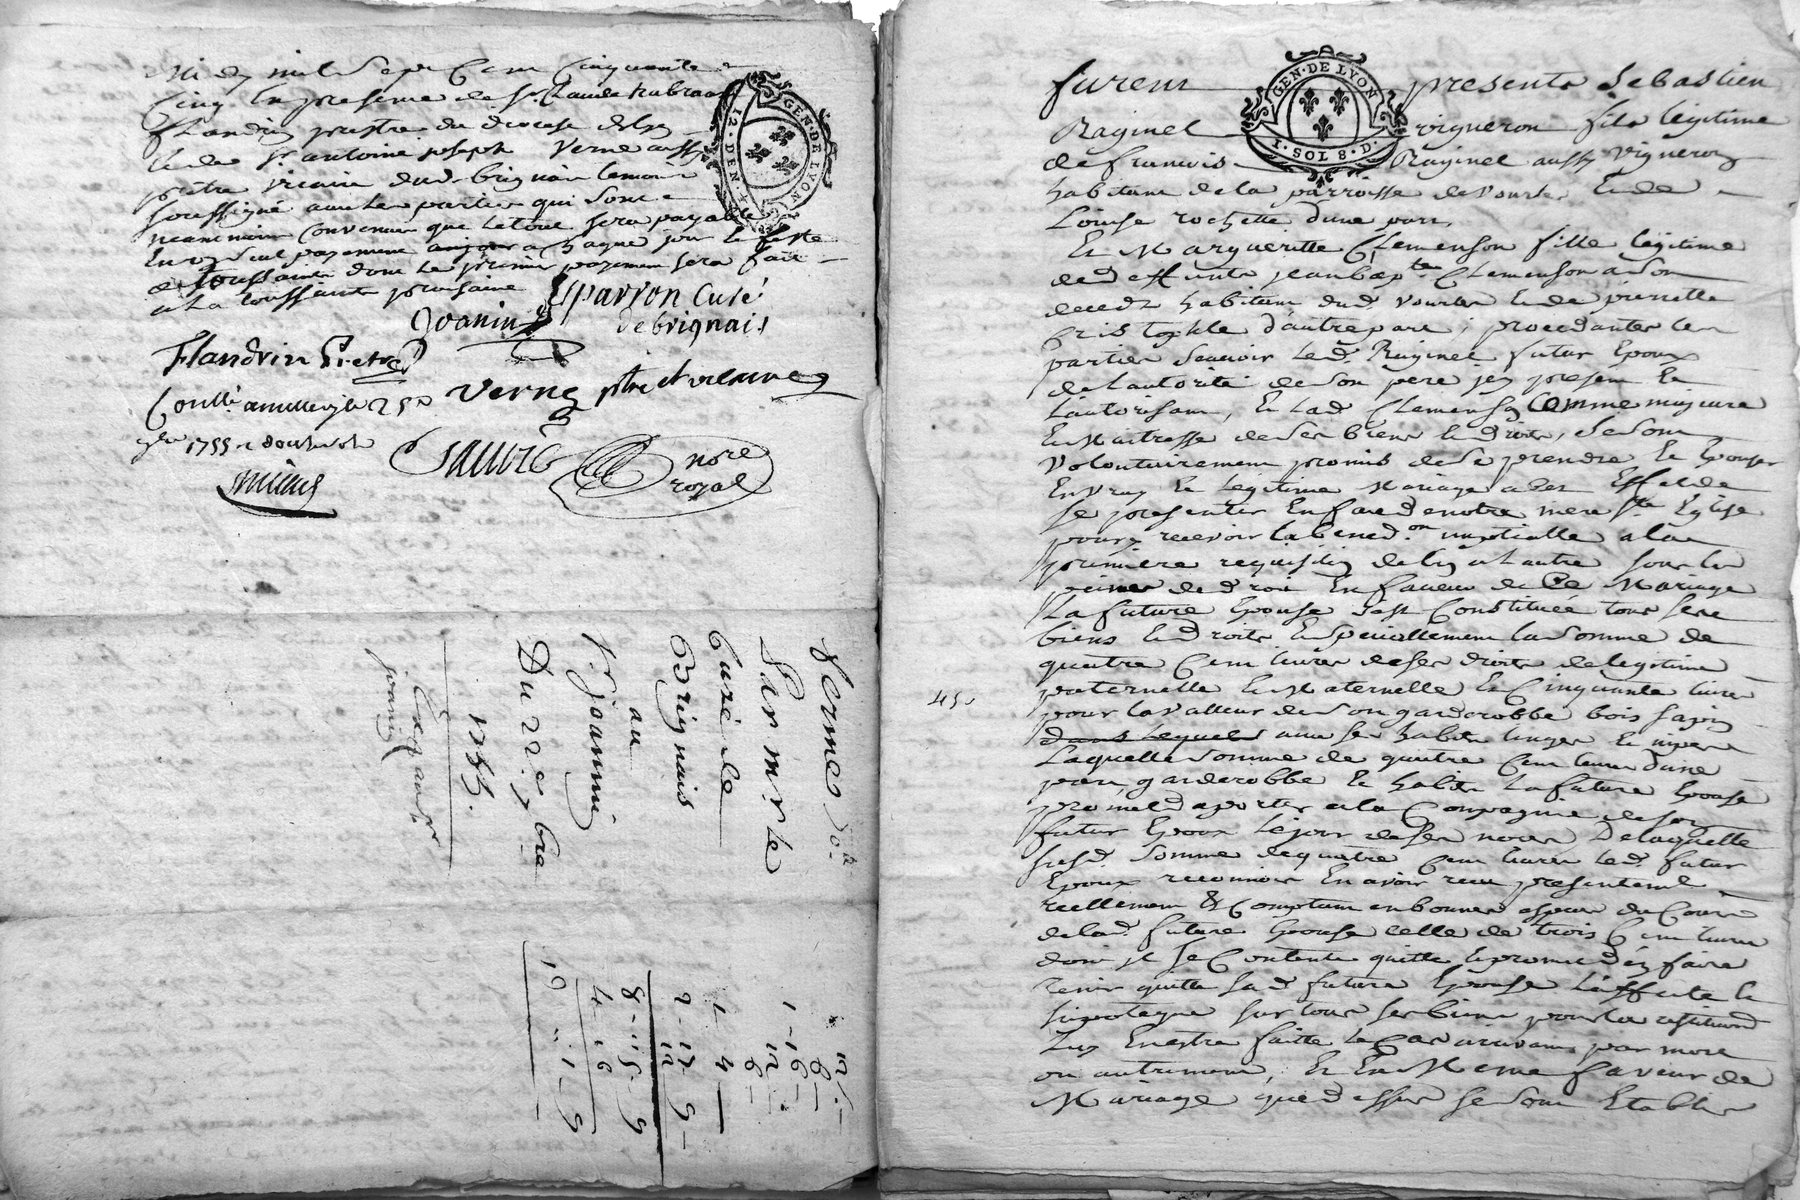 midy mil Sept Cent Cinquante
Cinq En presence de Sr. Claude
flandrin prestre du diocese de
Et de Sr. antoine joseph Verne aussy
prêtre vicaire dud. brignais
soussigné avec Les parties qui sont
neanmoins Convenues que Le tout sera payable
En un Seul payement a Chaque jour Et feste
de toussaints dont Le premier payement sera fait
a La toussaints prochaine
GEN·DE LYON
12·DEN·
Esparron Curé
debrignais
Joanin
flandrin Prêtre
Verne ptre et vicaire
Conllé a millery le 25e
9bre 1755 R douze sols
Sauvzé
nore
royal
fermes
Par mre Le
Curé de
Brignais
au
Sr. Joannin
Du 22e 9bre
1755.
Exp. au Sr.
joannin
GEN·DE LYON
1·SOL 8·D·
furent presents Sebastien
Raginel vigneron fils legitime
de francois Raginel aussy vigneron
habitant de la parroisse de vourles Et de
Louise rochette dune part
Et Margueritte Clemenson fille legitime
de deffunts jean bapte. Clemenson a son
deceds habitant dud. vourles Et de pierrette
Cristophle d'autre part; procedantes les
parties Scavoir Led. Raginel futur Epoux
de L'autorité de son pere icy present Et
L'autorisant, Et Lad. Clemenson Comme majeure
Et Maitresse de ses biens Et droits, se sont
volontairement promis de se prendre Et Epouser
En vray Et legitime Mariage a Cet Effet de
se presenter En face de notre mere Ste. Eglise
pour y recevoir La bened.on nuptialle a la
premiere requisition de lun a L'autre sous les
peines de droit En faveur de Ce Mariage
La future Epouse s'est Constituée tous ses
biens Et droits Et Speciallement La somme de
quatre Cent livres de ses droits de legitime
paternelle Et Maternelle Et Cinquante livres
450
pour la valleur de son garderobbe bois sapin
dans lequel avec ses habits linges Et nipes
Laquelle somme de quatre Cent livres d'une
part garderobbe Et habits La future Epouse
promet d'aporter a la Compagnie de son
futur Epoux Le jour de ses noces De laquelle
susd. somme de quatre Cent livres Led. futur
Epoux reconnoit En avoir reçu presentement
reellement & Comptant en bonnes especes du Cours
de lad. future Epouse Celle de trois Cent livres
dont il se Contente quitte Et promet d'en faire
tenir quitte sad. future Epouse L'affecte Et
hipoteque sur tous ses biens pour la restitution
Luy En estre faitte Le Cas arrivant par mort
ou autrement, Et En Meme faveur de
Mariage que dessus se sont Etablis